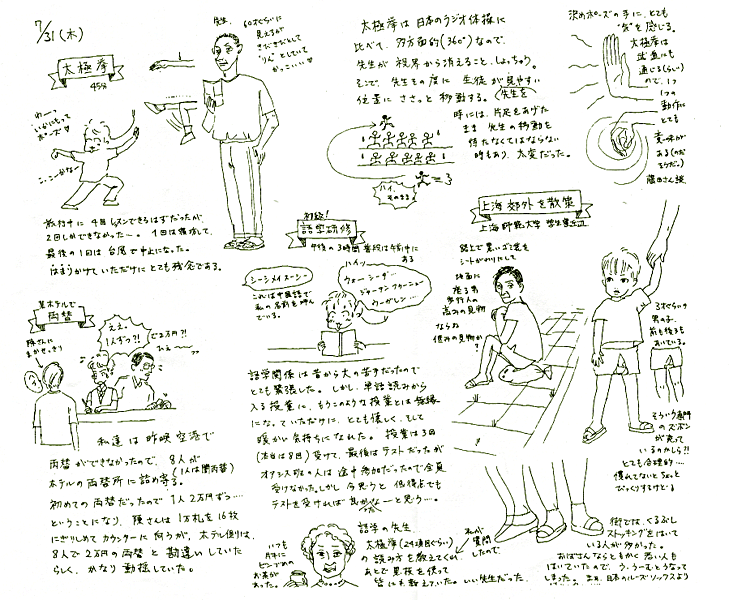 7/31(木)
太極拳
45分
先生、60才ぐらいに
見えるが
太極拳は日本のラジオ体操に
比べて、多方面的(360°)なので、
先生が視界から消えること、しょっちゅう。
そこで、先生の度に生徒が見やすい
位置にささっと移動する。先生を
時には、片足をあげた
まま先生の移動を
待たなくてはならない
時もあり、大変だった。
ハイ、
そのまま
決めポーズの手に、とても
"気"を感じる。
太極拳は
武道にも
通じる(らしい)
ので、1つ
1つの
動作に
とても
意味が
ある(のだ
そうだ。)
藤田さん談
わー。
いかにもって
ポーズ
旅行中に4回レッスンできるはずだったが、
2回しかできなかったー。1回は寝坊して、
最後の1回は台風で中止になった。
はまりかけていただけにとても残念である。
初級!
語学研修
午後の3時間 普段は午前中に
ある
シーシメイスーシー
これは中国語で
私の名前を呼んで
いる。
ハイッ
ウォーシーザー
語学関係は昔から大の苦手だったので
とても緊張した。しかし、単語読みから
入る授業に、もうこのような授業とは無縁
になっていただけに、とても優しく、そして
暖かい気持ちになれた。授業は3回
(本当は8回)受けて、最後はテストだったが
オアシス取の人は途中参加だったので全員
受けなかった。しかし今思うと低得点でも
テストを受ければ良かったなーと思う……。
上海郊外を散策
上海師範大学 学生寮近辺
路上で黒いゴミ袋を
シートがわりにして
地面に
座る男
歩行人の
高みの見物
ならぬ
低みの見物か?
3才ぐらいの
男の子。
前も後ろも
あいている。
そういう専門
のズボン
が売って
いるのかしら!!
とても合理的……
慣れてないと
びっくりするけどね
某ホテルで
両替
陳さんに
まかせっきり
ええ、
1人ずつ?!
で2万円?!
ひえ〜
私達は昨晩空港で
両替ができなかったので、8人が
(1人は関西替)
ホテルの両替所に詰め寄る。
初めての両替だったので1人2万円ずつ……
ということになり、陳さんは1万札を16枚
にぎりしめてカウンターに向うが、ホテル側は、
8人で2万円の両替と勘違いしていた
らしく、かなり動揺していた。
いつも
片手に
ビンづめの
お茶が
あった。
語学の先生
太極拳(24項目ぐらい)
の読み方を教えてくれ、
あとで黒板を使って
皆にも教えていた。いい先生だった。
私が
質問
したので、
街では、くるぶし
ストッキングをはいて
いる人が多かった。
おばさんならともかく若い人も
はいていたので、う、うーむとうなって
しまった。まあ、日本のルーズソックスより